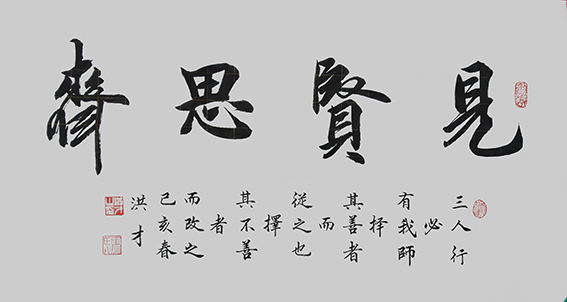 見賢思齊
三人行
必
有我師
择
其善者
而
從之也
擇
其不善
者
而改之
己亥春
洪才